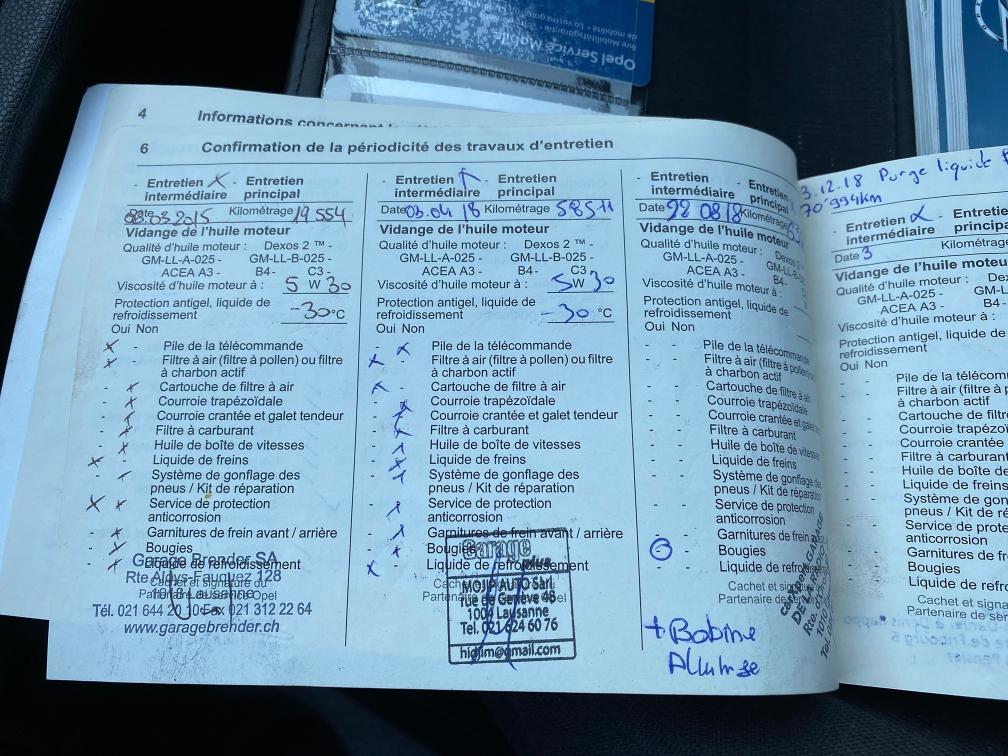 Opel Service Mobile
de mobilité · La vostra
4 Informations concernant
6 Confirmation de la périodicité des travaux d'entretien
- Entretien X - Entretien
intermédiaire principal
Date 03.03.2015 Kilométrage 19 554
Vidange de l'huile moteur
Qualité d'huile moteur : Dexos 2 ™ -
GM-LL-A-025 - GM-LL-B-025 -
ACEA A3 - B4 - C3 -
Viscosité d'huile moteur à : 5 W 30
Protection antigel, liquide de
refroidissement -30 °C
Oui Non
X - Pile de la télécommande
X - Filtre à air (filtre à pollen) ou filtre
à charbon actif
- X Cartouche de filtre à air
- X Courroie trapézoïdale
- X Courroie crantée et galet tendeur
- X Filtre à carburant
- X Huile de boîte de vitesses
X - Liquide de freins
- X Système de gonflage des
pneus / Kit de réparation
X X Service de protection
anticorrosion
- X Garnitures de frein avant / arrière
- X Bougies
- X Liquide de refroidissement
Cachet et signature du
Partenaire de service Opel
Garage Brender SA
Rte Aloys-Fauquez 128
1018 Lausanne
Tél. 021 644 20 10 Fax 021 312 22 64
www.garagebrender.ch
- Entretien - Entretien
intermédiaire principal
Date 03.04 18 Kilométrage 58511
Vidange de l'huile moteur
Qualité d'huile moteur : Dexos 2 ™ -
GM-LL-A-025 - GM-LL-B-025 -
ACEA A3 - B4 - C3 -
Viscosité d'huile moteur à : 5 W 30
Protection antigel, liquide de
refroidissement -30 °C
Oui Non
- X Pile de la télécommande
X - Filtre à air (filtre à pollen) ou filtre
à charbon actif
X - Cartouche de filtre à air
- X Courroie trapézoïdale
- X Courroie crantée et galet tendeur
- X Filtre à carburant
- X Huile de boîte de vitesses
- X Liquide de freins
- X Système de gonflage des
pneus / Kit de réparation
- X Service de protection
anticorrosion
- X Garnitures de frein avant / arrière
- X Bougies
X - Liquide de refroidissement
Cachet et signature du
Partenaire de service Opel
Garage
plus
MOJIP AUTO Sàrl
rue de Genève 48
1004 Lausanne
Tel. 021 624 60 76
- Entretien - Entretien
intermédiaire principal
Date 08 18 Kilométrage
Vidange de l'huile moteur
Qualité d'huile moteur : Dexos
GM-LL-A-025 - GM-LL-B-
ACEA A3 - B4 -
Viscosité d'huile moteur à :
Protection antigel, liquide de
refroidissement
Oui Non
- - Pile de la télécommande
- - Filtre à air (filtre à pollen)
à charbon actif
- - Cartouche de filtre à air
- - Courroie trapézoïdale
- - Courroie crantée et galet
- - Filtre à carburant
- - Huile de boîte de vitesses
- - Liquide de freins
- - Système de gonflage
pneus / Kit de réparation
- - Service de protection
anticorrosion
- - Garnitures de frein
- Bougies
- - Liquide de refroidi
Cachet et signatu
Partenaire de
+ Bobine
Allumage
3.12.18 Purge liquide
70'994km
Entretien X - Entretie
intermédiaire principal
Date 3 Kilométrage
Vidange de l'huile moteu
Qualité d'huile moteur : De
GM-LL-A-025 - GM-L
ACEA A3 - B4
Viscosité d'huile moteur à :
Protection antigel, liquide de
refroidissement
Oui Non
- - Pile de la télécomm
- - Filtre à air (filtre à p
à charbon actif
- - Cartouche de filtre
- - Courroie trapézoïd
- - Courroie crantée
- - Filtre à carburant
- - Huile de boîte de
- - Liquide de freins
- - Système de gon
pneus / Kit de ré
- - Service de prote
anticorrosion
- - Garnitures de fr
- - Bougies
- - Liquide de refro
Cachet et signa
Partenaire de sér